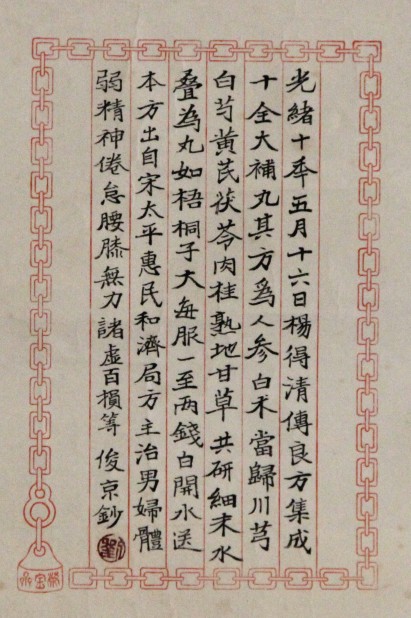 光緒十年五月十六日楊得清傳良方集成
十全大補丸其方為人參白朮當歸川芎
白芍黃芪茯苓肉桂熟地甘草共研細末水
叠為丸如梧桐子大每服一至兩錢白開水送
本方出自宋太平惠民和濟局方主治男婦體
弱精神倦怠腰膝無力諸虛百損等 俊京鈔